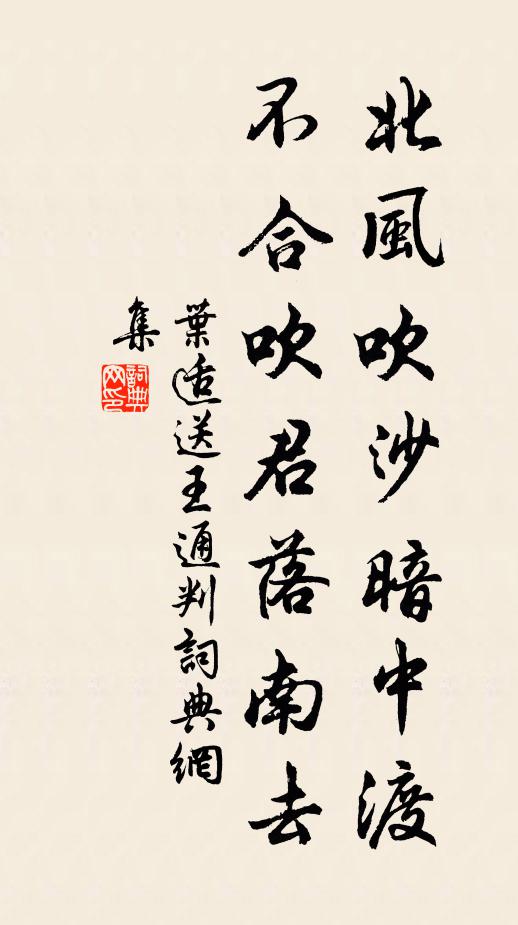 北風吹沙暗中渡
不合吹君落南去
葉適送王通判詞典網
集
詞典
网印